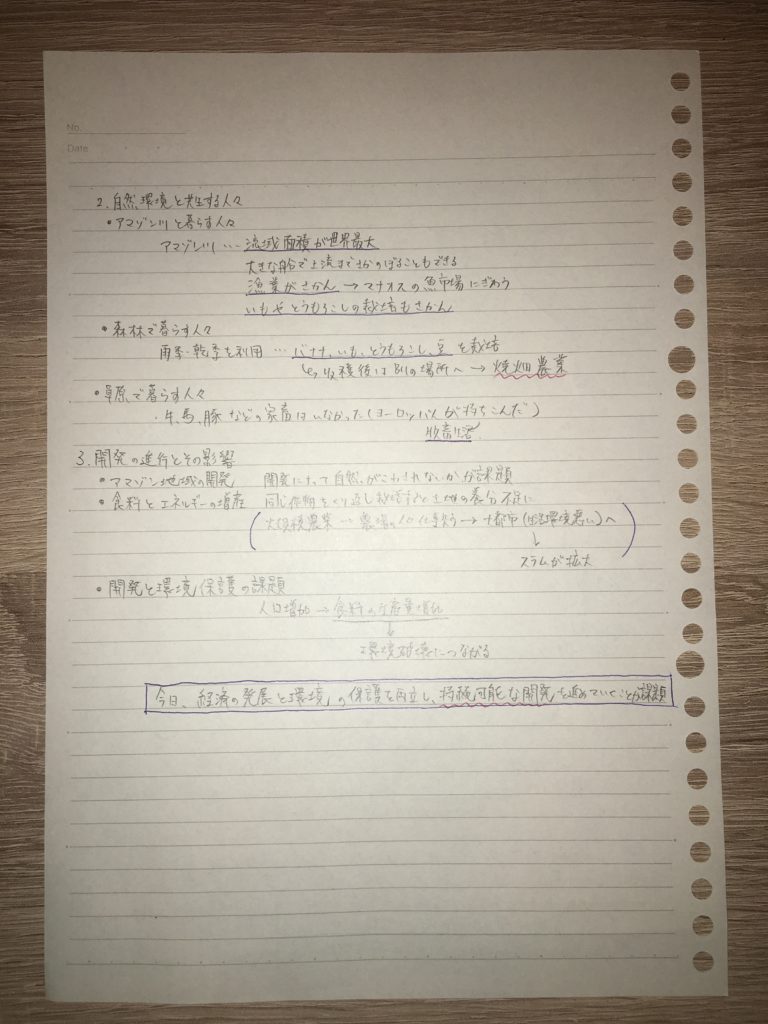 No.
Date
2. 自然環境と共生する人々
・アマゾン川と暮らす人々
アマゾン川 … 流域面積が世界最大
大きな船で上流までさかのぼることもできる
漁業がさかん → マナオスの魚市場にぎわう
いもやとうもろこしの栽培もさかん
・森林で暮らす人々
雨季・乾季を利用 … バナナ、いも、とうもろこし、豆 を栽培
↳ 収穫後は別の場所へ → 焼畑農業
・草原で暮らす人々
・牛、馬、豚 などの家畜はいなかった(ヨーロッパ人が持ちこんだ)
牧畜
3. 開発の進行とその影響
・アマゾン地域の開発 開発によって自然がこわされないかが課題
・食料とエネルギーの増産 同じ作物をくり返し栽培すると土地の養分不足に
(大規模農業 … 農場の人口 仕事失う → 都市(生活環境悪い)へ)
↓
スラムが拡大
・開発と環境保護の課題
人口増加 → 食料の生産量増加
↓
環境破壊につながる
今日、経済の発展と環境の保護を両立し、持続可能な開発を進めていくことが課題